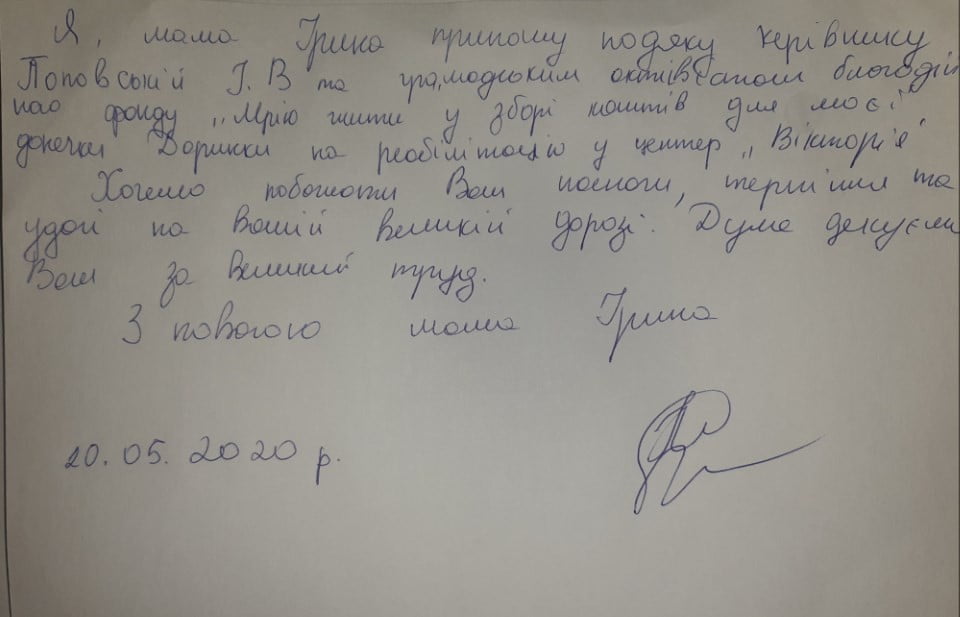 Я, мама Ірина приношу подяку керівнику
Поповській І.В та громадським активістам благодій
ного фонду „Мрію жити у зборі коштів для моєї
донечки Даринки на реабілітацію у центер „Вікторія"
Хочемо побажати Вам наснаги, терпіння та
удачі на Вашій великій дорозі. Дуже дякуємо
Вам за великий труд.
З повагою мама Ірина
20.05.2020 р.